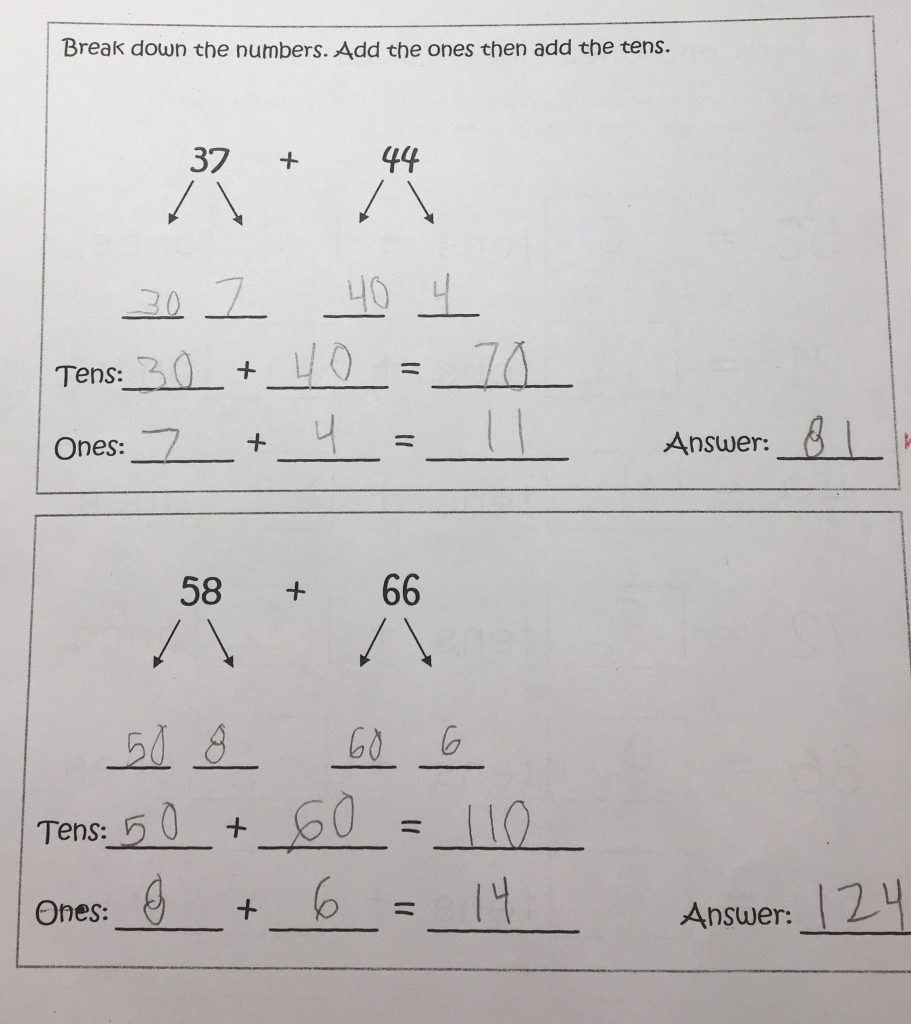 Break down the numbers. Add the ones then add the tens.
37 + 44
30 7 40 4
Tens: 30 + 40 = 70
Ones: 7 + 4 = 11 Answer: 81
58 + 66
50 8 60 6
Tens: 50 + 60 = 110
Ones: 8 + 6 = 14 Answer: 124